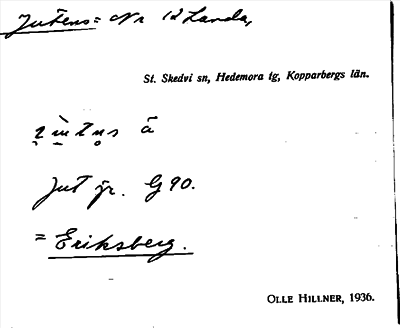 Jutens = Nr 12 Landa,
St. Skedvi sn, Hedemora tg, Kopparbergs län.
Jut jr. G 90.
= Eriksberg.
OLLE HILLNER, 1936.